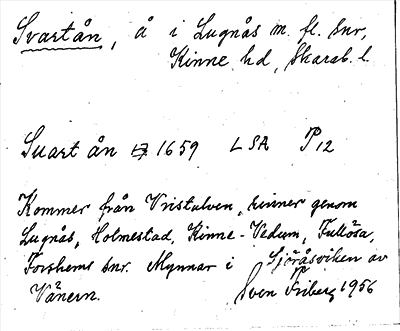 Svartån, å i Lugnås m. fl. snr,
Kinne hd, Skarab. l.
Svart ån 1659 LSA P12
Kommer från Vristulven, rinner genom
Lugnås, Holmestad, Kinne-Vedum, Fullösa,
Forshems snr. Mynnar i Sjöråsviken av
Vänern. Sven Friberg 1956